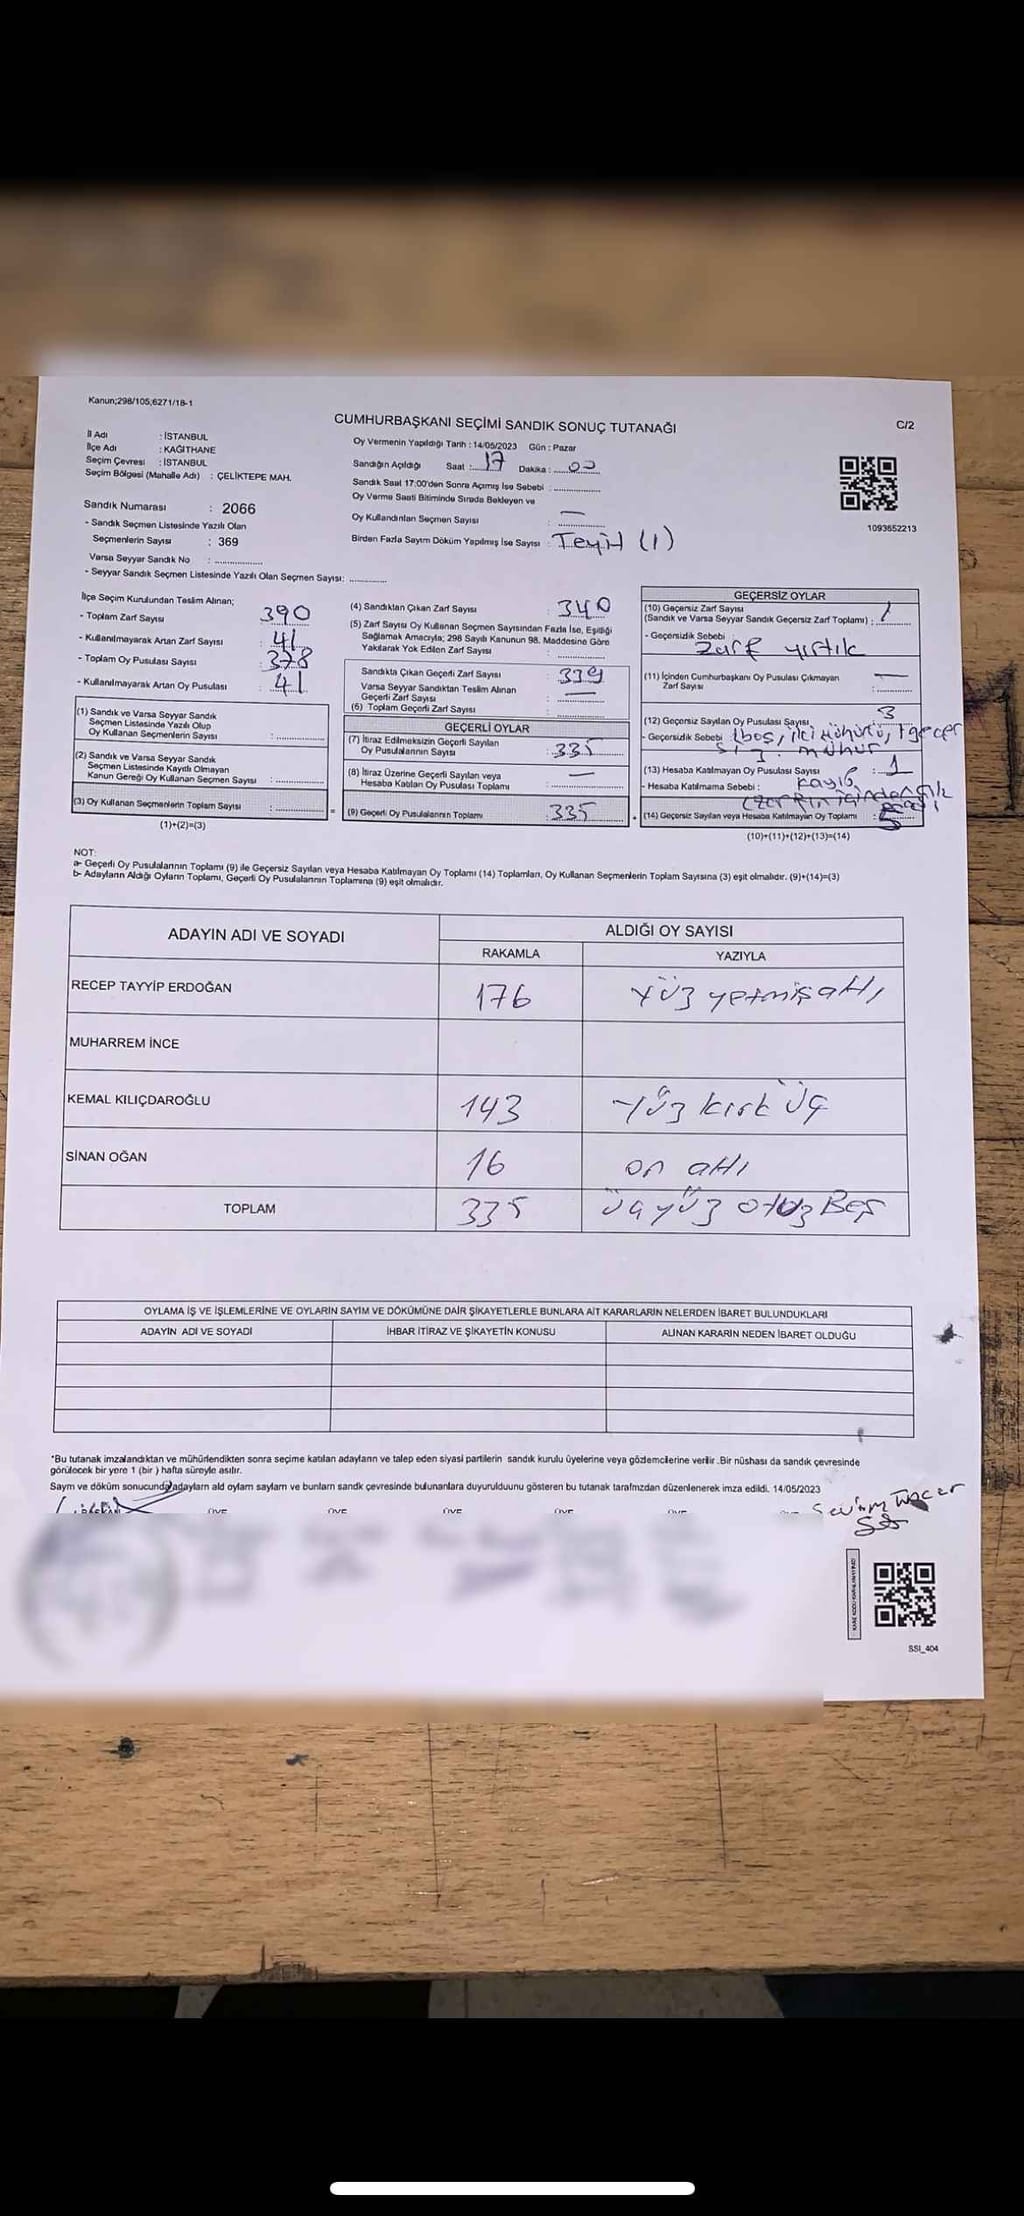 Kanun;298/105,6271/18-1
CUMHURBAŞKANI SEÇİMİ SANDIK SONUÇ TUTANAĞI
C/2
İl Adı : İSTANBUL
İlçe Adı : KAĞITHANE
Seçim Çevresi : İSTANBUL
Seçim Bölgesi (Mahalle Adı) : ÇELİKTEPE MAH.
Sandık Numarası : 2066
- Sandık Seçmen Listesinde Yazılı Olan
Seçmenlerin Sayısı : 369
Varsa Seyyar Sandık No :
- Seyyar Sandık Seçmen Listesinde Yazılı Olan Seçmen Sayısı:
Oy Vermenin Yapıldığı Tarih : 14/05/2023 Gün : Pazar
Sandığın Açıldığı Saat : 17 Dakika : 00
Sandık Saat 17:00'den Sonra Açımış İse Sebebi :
Oy Verme Saati Bitiminde Sırada Bekleyen ve
Oy Kullandırılan Seçmen Sayısı : —
Birden Fazla Sayım Döküm Yapılmış İse Sayısı : Teyit (1)
1093652213
İlçe Seçim Kurulundan Teslim Alınan;
- Toplam Zarf Sayısı : 390
- Kullanılmayarak Artan Zarf Sayısı : 41
- Toplam Oy Pusulası Sayısı : 378
- Kullanılmayarak Artan Oy Pusulası : 41
(1) Sandık ve Varsa Seyyar Sandık
Seçmen Listesinde Yazılı Olup
Oy Kullanan Seçmenlerin Sayısı :
(2) Sandık ve Varsa Seyyar Sandık
Seçmen Listesinde Kayıtlı Olmayan
Kanun Gereği Oy Kullanan Seçmen Sayısı :
(3) Oy Kullanan Seçmenlerin Toplam Sayısı :
(1)+(2)=(3)
(4) Sandıktan Çıkan Zarf Sayısı : 340
(5) Zarf Sayısı Oy Kullanan Seçmen Sayısından Fazla İse, Eşitliği
Sağlamak Amacıyla; 298 Sayılı Kanunun 98. Maddesine Göre
Yakılarak Yok Edilen Zarf Sayısı :
Sandıkta Çıkan Geçerli Zarf Sayısı : 339
Varsa Seyyar Sandıktan Teslim Alınan
Geçerli Zarf Sayısı : —
(6) Toplam Geçerli Zarf Sayısı :
GEÇERLİ OYLAR
(7) İtiraz Edilmeksizin Geçerli Sayılan
Oy Pusulalarının Sayısı : 335
(8) İtiraz Üzerine Geçerli Sayılan veya
Hesaba Katılan Oy Pusulası Toplamı : —
(9) Geçerli Oy Pusulalarının Toplamı : 335
GEÇERSİZ OYLAR
(10) Geçersiz Zarf Sayısı
(Sandık ve Varsa Seyyar Sandık Geçersiz Zarf Toplamı) : 1
- Geçersizlik Sebebi
Zarf yırtık
(11) İçinden Cumhurbaşkanı Oy Pusulası Çıkmayan
Zarf Sayısı : —
(12) Geçersiz Sayılan Oy Pusulası Sayısı 3
- Geçersizlik Sebebi 1boş, iki mühürlü, 1geçer
siz mühür
(13) Hesaba Katılmayan Oy Pusulası Sayısı : 1
- Hesaba Katılmama Sebebi : kayıp
(14) Geçersiz Sayılan veya Hesaba Katılmayan Oy Toplamı : 5
(10)+(11)+(12)+(13)=(14)
NOT:
a- Geçerli Oy Pusulalarının Toplamı (9) ile Geçersiz Sayılan veya Hesaba Katılmayan Oy Toplamı (14) Toplamları, Oy Kullanan Seçmenlerin Toplam Sayısına (3) eşit olmalıdır. (9)+(14)=(3)
b- Adayların Aldığı Oyların Toplamı, Geçerli Oy Pusulalarının Toplamına (9) eşit olmalıdır.
ADAYIN ADI VE SOYADI ALDIĞI OY SAYISI
RAKAMLA YAZIYLA
RECEP TAYYİP ERDOĞAN 176 Yüz yetmiş altı
MUHARREM İNCE
KEMAL KILIÇDAROĞLU 143 Yüz kırk üç
SİNAN OĞAN 16 on altı
TOPLAM 335 üçyüz otuz Beş
OYLAMA İŞ VE İŞLEMLERİNE VE OYLARIN SAYIM VE DÖKÜMÜNE DAİR ŞİKAYETLERLE BUNLARA AİT KARARLARIN NELERDEN İBARET BULUNDUKLARI
ADAYIN ADI VE SOYADI İHBAR İTİRAZ VE ŞİKAYETİN KONUSU ALINAN KARARIN NEDEN İBARET OLDUĞU
*Bu tutanak imzalandıktan ve mühürlendikten sonra seçime katılan adayların ve talep eden siyasi partilerin sandık kurulu üyelerine veya gözlemcilerine verilir .Bir nüshası da sandık çevresinde
görülecek bir yere 1 (bir ) hafta süreyle asılır.
Sayım ve döküm sonucunda adayların ald oyların sayıların ve bunların sandk çevresinde bulunanlara duyurulduunu gösteren bu tutanak tarafmzdan düzenlenerek imza edildi. 14/05/2023
BAŞKAN ÜYE ÜYE ÜYE ÜYE ÜYE
SSI_404